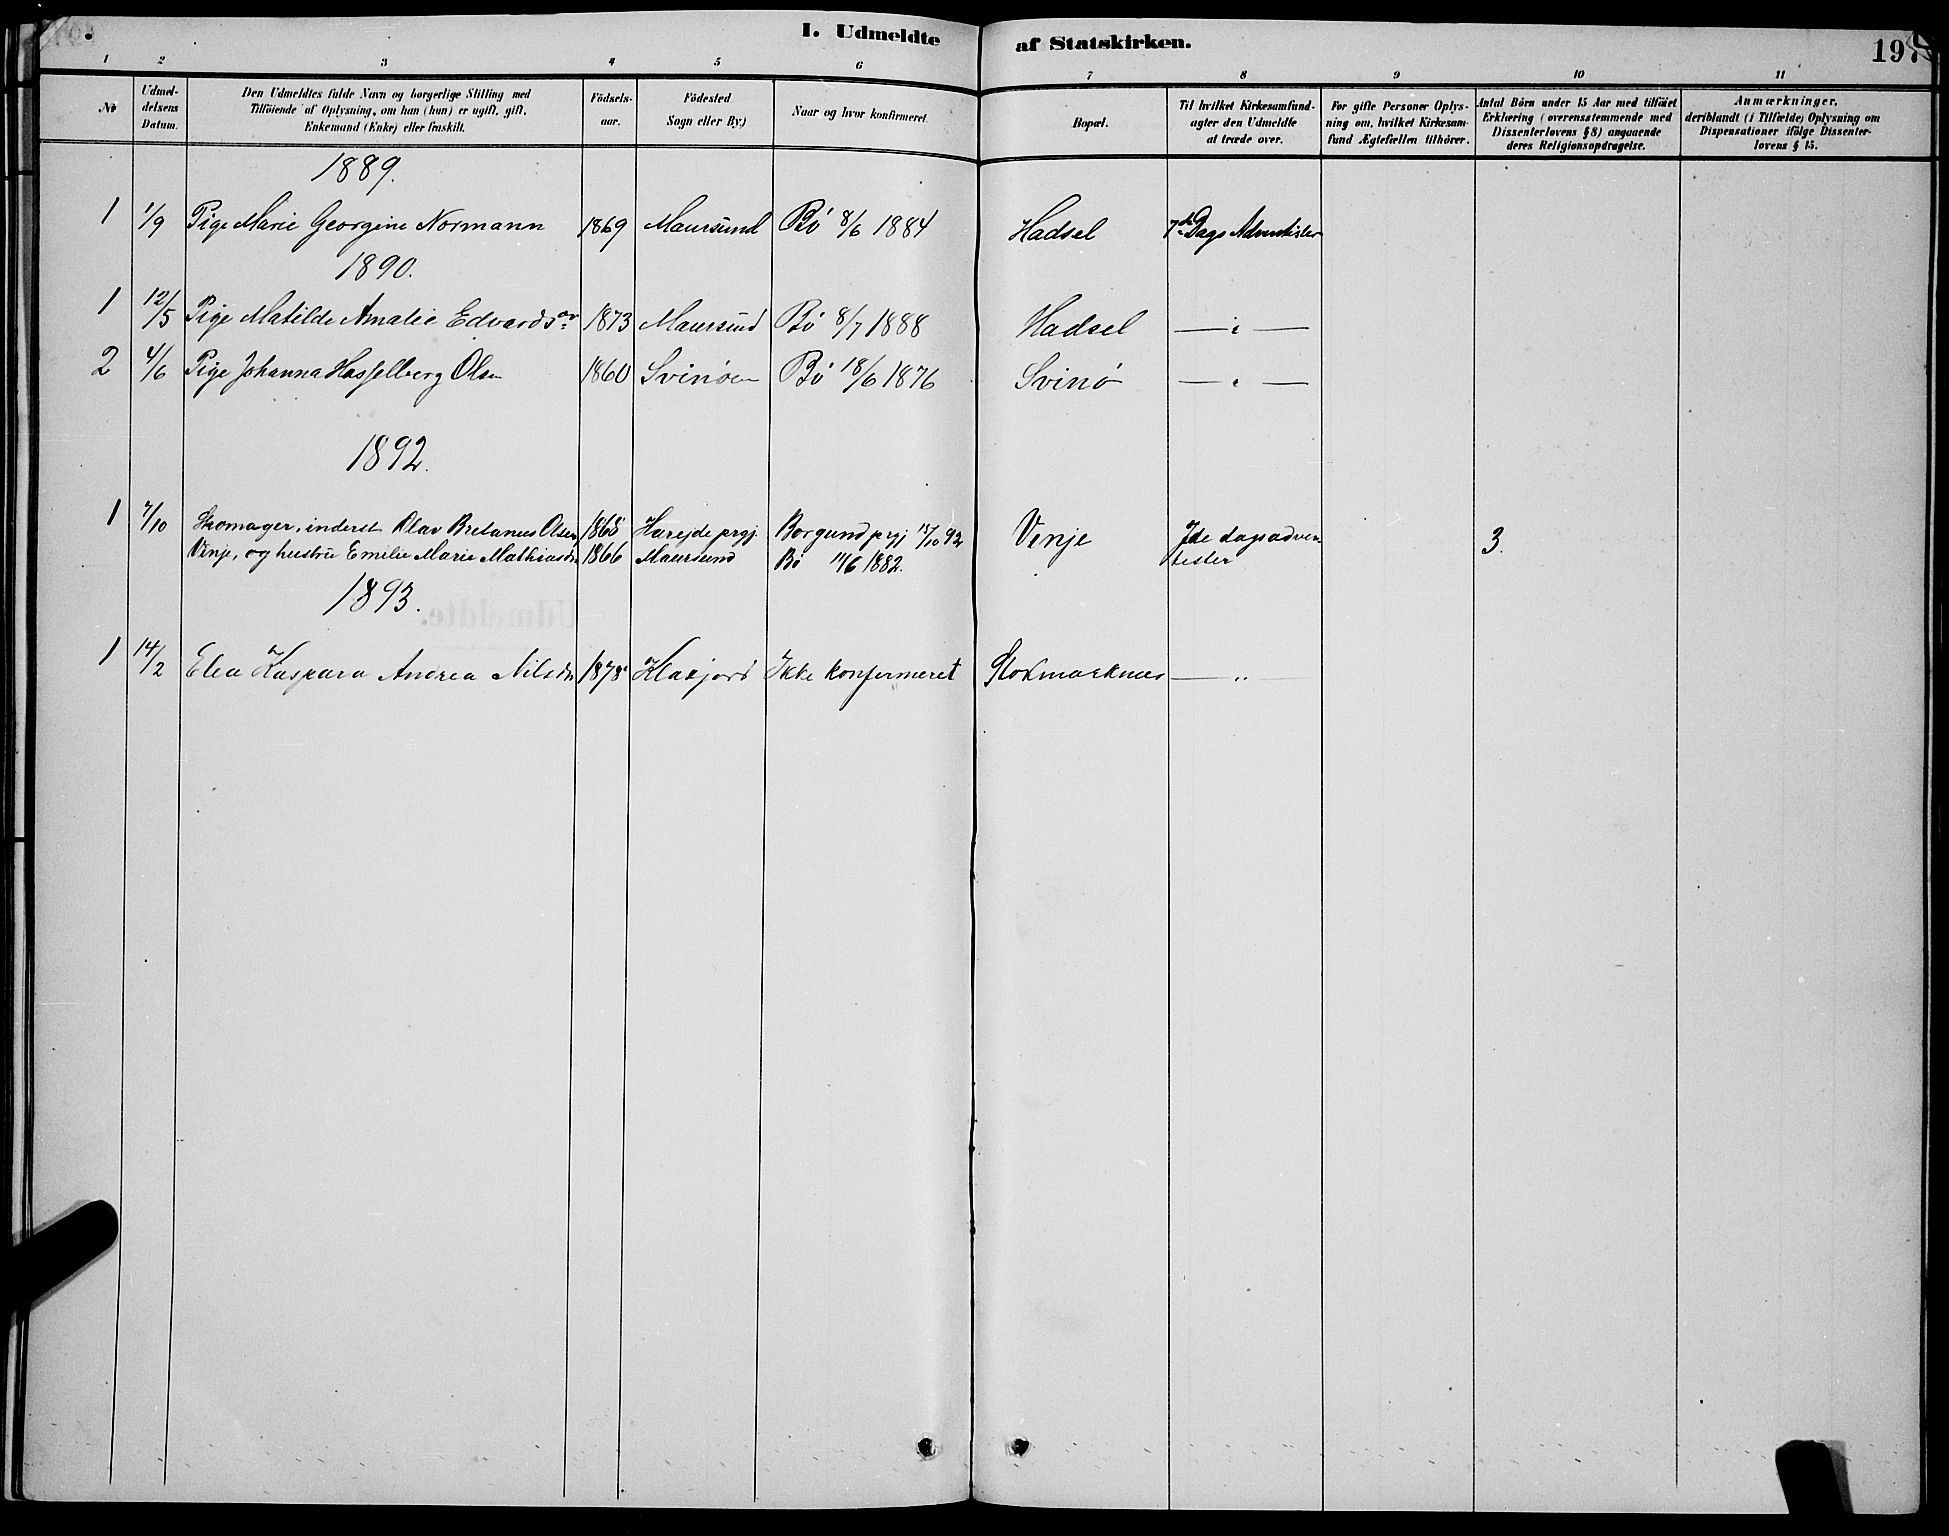 I. Udmeldte af Statskirken.
197
1 2 3 4 5 6 7 8 9 10 11
Nr
Udmel-
delsens
Datum.
Den Udmeldtes fulde Navn og borgerlige Stilling med
Tilföiende af Oplysning, om han (hun) er ugift, gift,
Enkemand (Enke) eller fraskilt.
Födsels-
aar.
Födested
Sogn eller By.)
Naar og hvor konfirmeret.
Bopæl.
Til hvilket Kirkesamfund-
agter den Udmeldte
at træde over.
For gifte Personer Oplys-
ning om, hvilket Kirkesam-
fund Ægtefællen tilhörer.
Antal Börn under 15 Aar med tilföiet
Erklæring (overensstemmende med
Dissenterlovens § 8) angaaende
deres Religionsopdragelse.
Anmærkninger,
deriblandt (i Tilfælde) Oplysning om
Dispensationer ifölge Dissenter-
lovens § 15.
1889.
1 1/9 Pige Marie Georgine Normann 1869 Maursund Bö 8/6 1884 Hadsel 7de Dags Adventister
1890.
1 12/5 Pige Matilde Amalie Edvardsdr 1873 Maursund Bö 8/7 1888 Hadsel — " —
2 4/6 Pige Johanna Hasselberg Olsen 1860 Svinöen Bö 18/6 1876 Svinö — " —
1892.
1 7/10 Skomager, inderst Olav Bretanus Olsen 1865 Hareide prgj. Borgund prgj 92 Venje 7de dags adven-
Vinje, og hustru Emilie Marie Mathiasdr 1866 Maursund Bö 11/6 1882. tister 3.
1893.
1 14/2 Elea Kaspara Andrea Nilsdr 1878 Klakjord Ikke konfirmeret Stokmarknes — " —
Udmeldte.